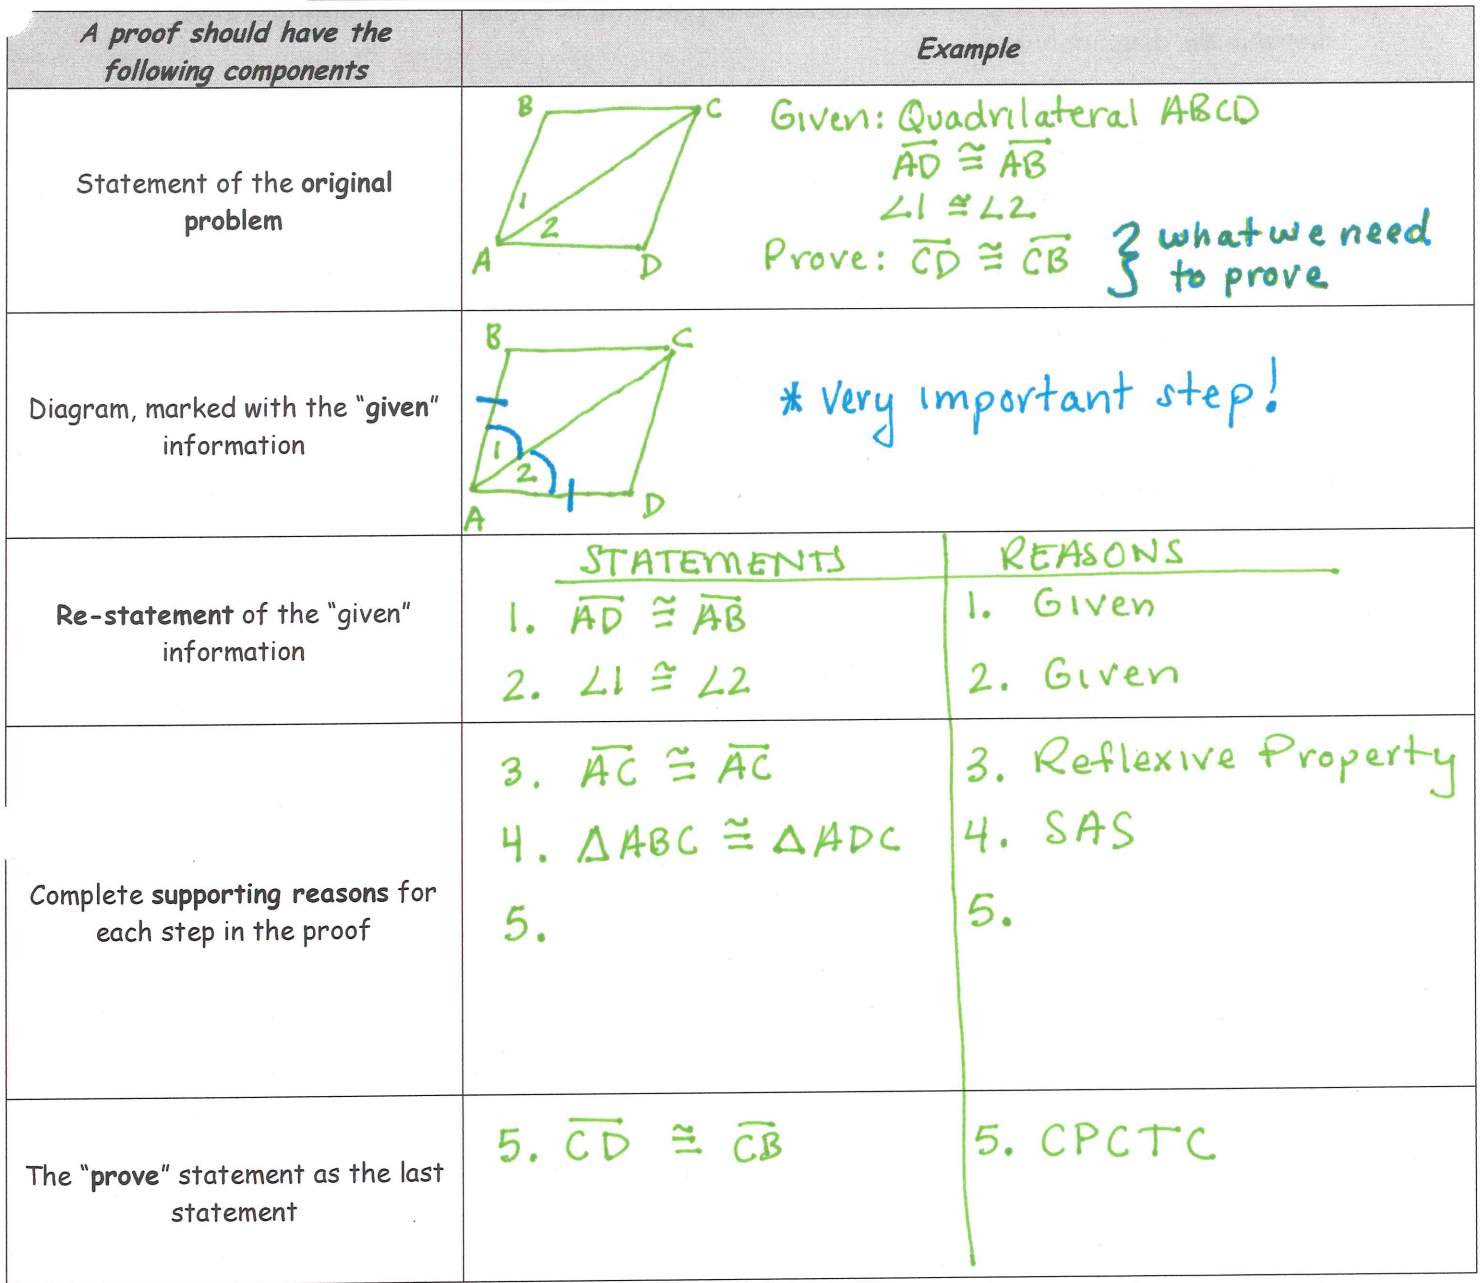 A proof should have the
following components
Example
Statement of the original
problem
B
C
1
2
A
D
Given: Quadrilateral ABCD
AD ≅ AB
∠1 ≅ ∠2
Prove: CD ≅ CB
} what we need
to prove
Diagram, marked with the "given"
information
B
C
1
2
A
D
* Very important step!
Re-statement of the "given"
information
STATEMENTS
REASONS
1. AD ≅ AB
1. Given
2. ∠1 ≅ ∠2
2. Given
Complete supporting reasons for
each step in the proof
3. AC ≅ AC
3. Reflexive Property
4. ΔABC ≅ ΔADC
4. SAS
5.
5.
The "prove" statement as the last
statement
5. CD ≅ CB
5. CPCTC